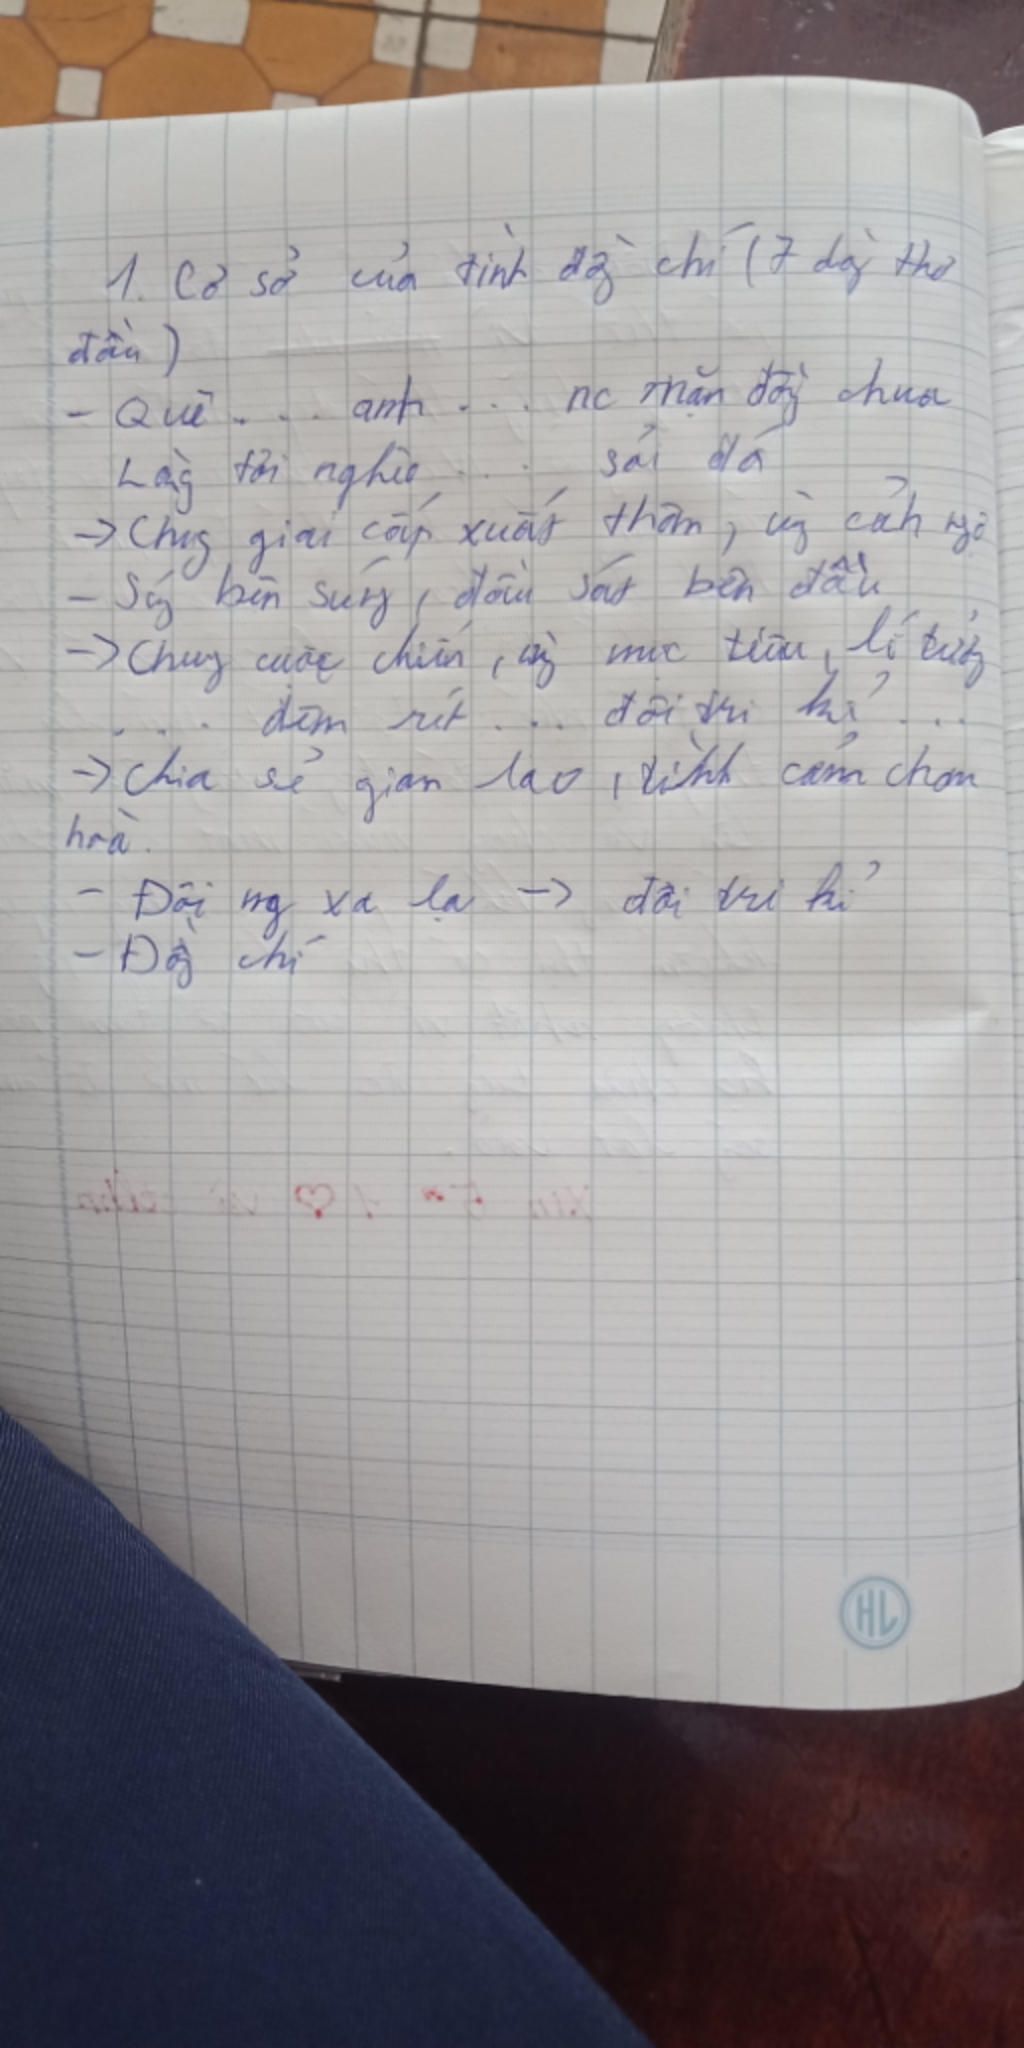 1. Cơ sở của tình đồg chí (7 dòg thơ
đầu)
- Quê ... anh ... nc mặn đồg chua
Làg tôi nghèo ... sỏi đá
-> Chug giai cấp xuất thân, cùg cảnh ngộ
- Súg bên súng, đầu sát bên đầu
-> Chung cuộc chiến, cùg mục tiêu, lí tưởng
.... đêm rét ... đôi tri kỉ ...
-> Chia sẻ gian lao, tình cảm chan
hoà.
- Đôi ng xa lạ -> đôi tri kỉ
- Đồg chí
HL